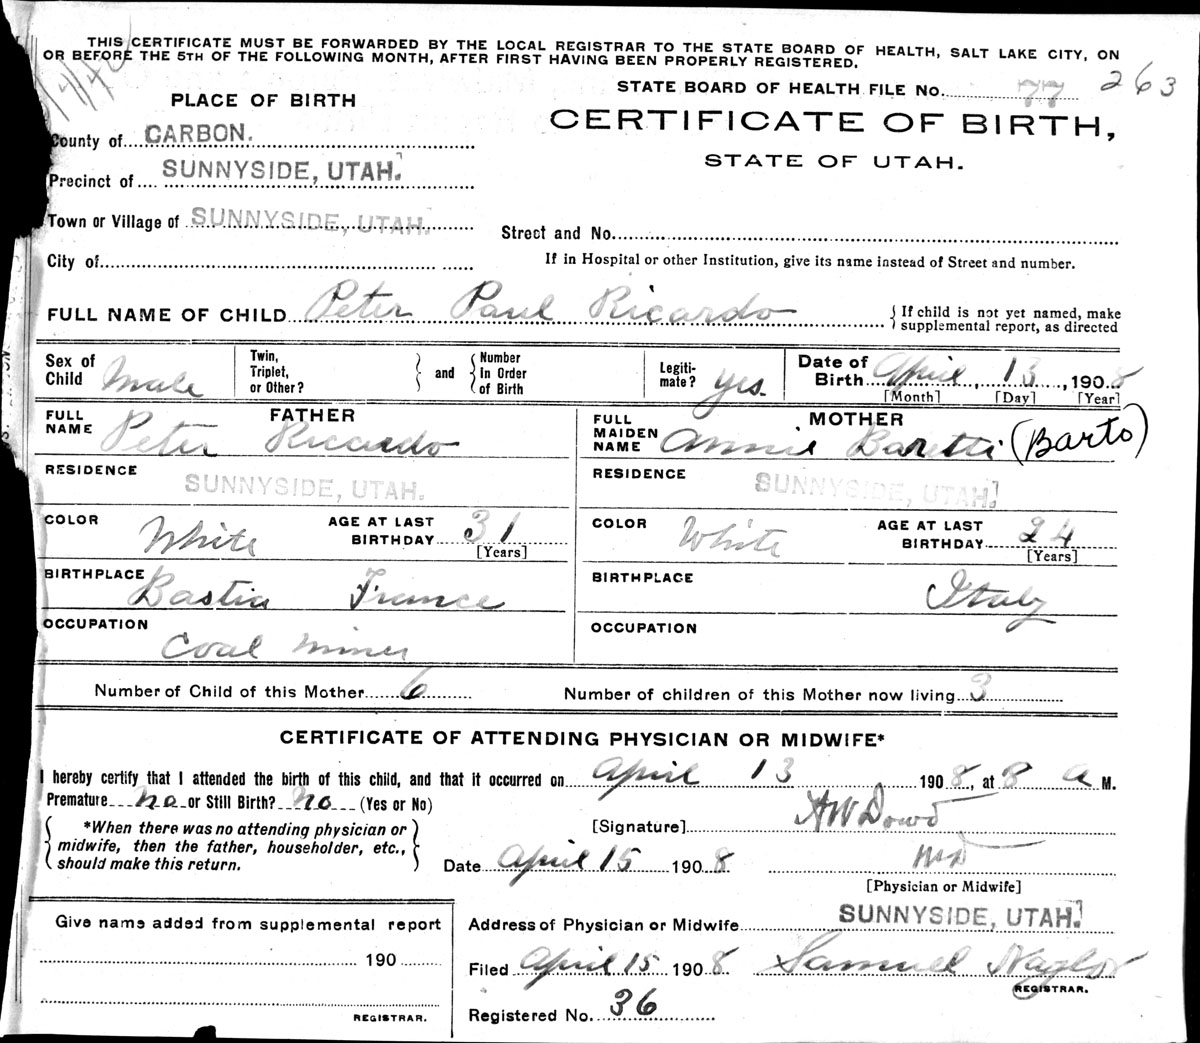 THIS CERTIFICATE MUST BE FORWARDED BY THE LOCAL REGISTRAR TO THE STATE BOARD OF HEALTH, SALT LAKE CITY, ON
OR BEFORE THE 5TH OF THE FOLLOWING MONTH, AFTER FIRST HAVING BEEN PROPERLY REGISTERED.
STATE BOARD OF HEALTH FILE No. 77 263
PLACE OF BIRTH
CERTIFICATE OF BIRTH,
County of CARBON.
STATE OF UTAH.
Precinct of SUNNYSIDE, UTAH.
Town or Village of SUNNYSIDE, UTAH.
Street and No.
City of
If in Hospital or other Institution, give its name instead of Street and number.
FULL NAME OF CHILD Peter Paul Ricardo { If child is not yet named, make
supplemental report, as directed
Sex of Child Male
Twin, Triplet, or Other? } and { Number In Order of Birth
Legiti-mate? yes.
Date of Birth April 13, 1908
[Month] [Day] [Year]
FATHER
FULL NAME Peter Riccardo
MOTHER
FULL MAIDEN NAME Annie Baretti (Barto)
RESIDENCE SUNNYSIDE, UTAH.
RESIDENCE SUNNYSIDE, UTAH.
COLOR White AGE AT LAST BIRTHDAY 31 [Years]
COLOR White AGE AT LAST BIRTHDAY 24 [Years]
BIRTHPLACE Bastia France
BIRTHPLACE Italy
OCCUPATION Coal miner
OCCUPATION
Number of Child of this Mother 6 Number of children of this Mother now living 3
CERTIFICATE OF ATTENDING PHYSICIAN OR MIDWIFE*
I hereby certify that I attended the birth of this child, and that it occurred on April 13 1908, at 8 a M.
Premature no or Still Birth? no (Yes or No)
{ *When there was no attending physician or
midwife, then the father, householder, etc.,
should make this return. }
[Signature] HW Dowd
Date April 15 1908 MD
[Physician or Midwife]
Give name added from supplemental report
190
REGISTRAR.
Address of Physician or Midwife SUNNYSIDE, UTAH.
Filed April 15 1908 Samuel Naylor
REGISTRAR.
Registered No. 36